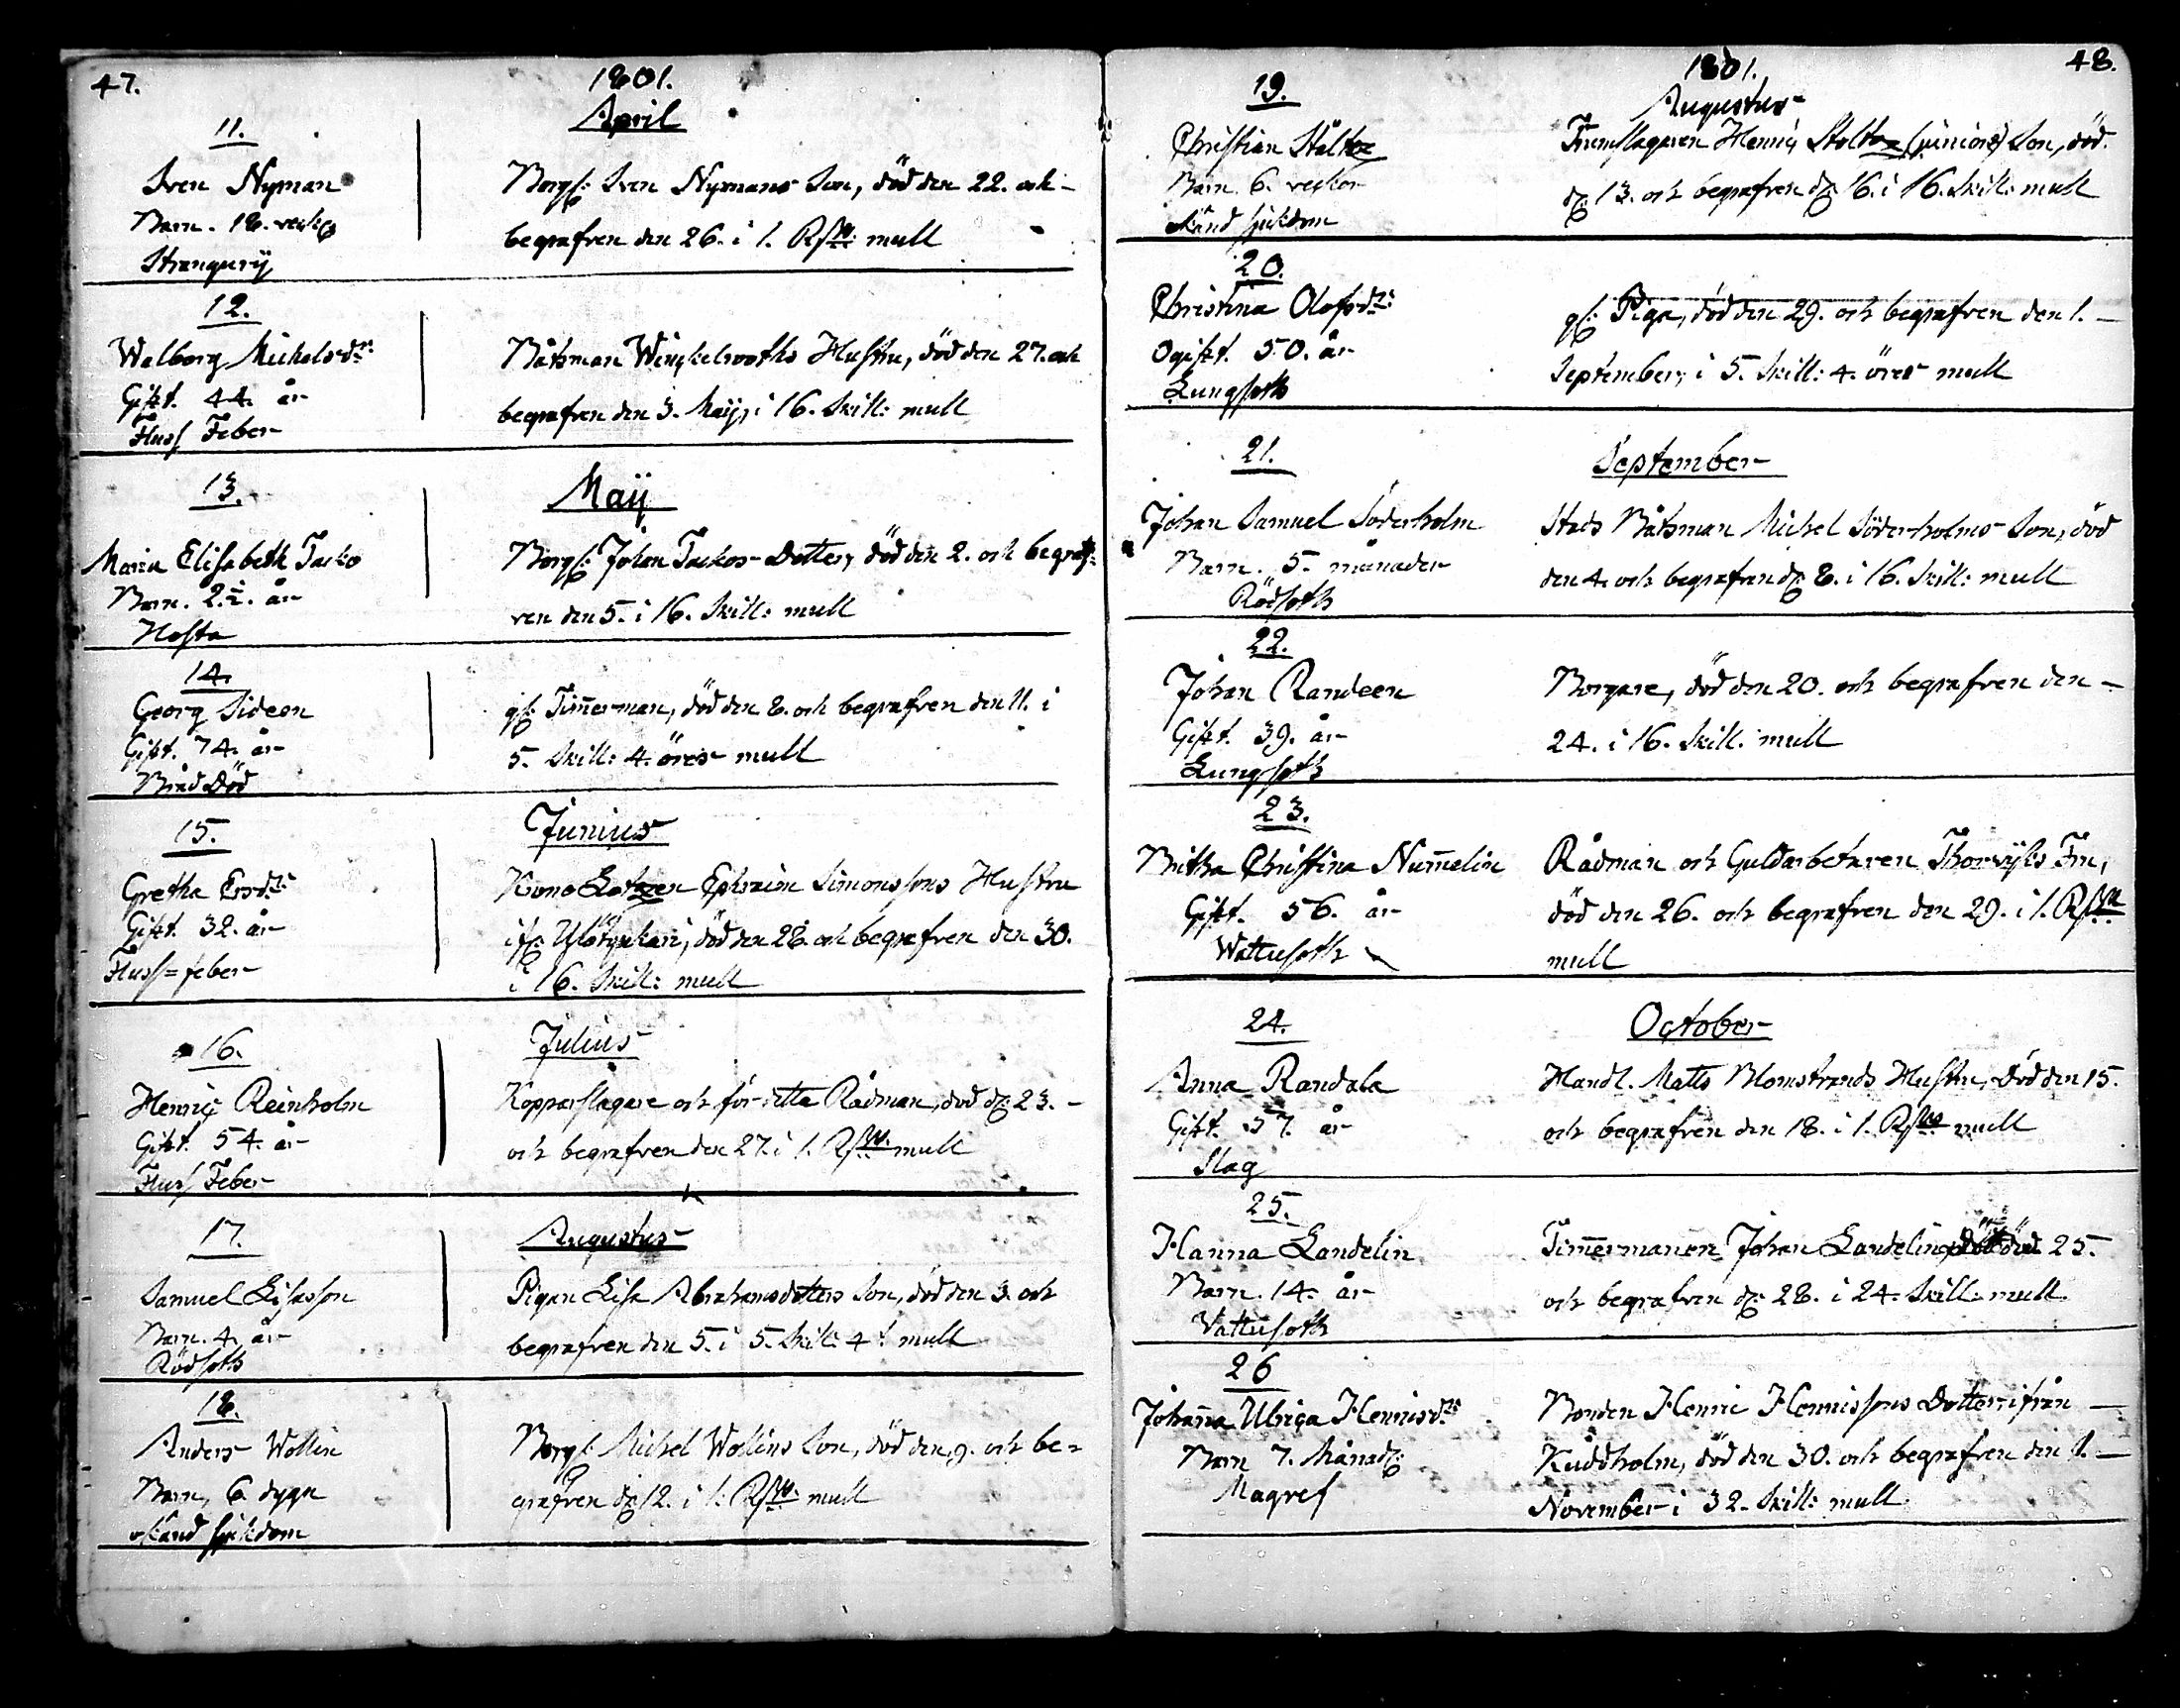 47.
1801.
April
11.
Sven Nyman
Barn. 18. veck:
Strangurij
Borg: Sven Nymans Son, död den 22. och
begrafven den 26. i 1. R mull
12.
Walborg Michelsdr:
Gift. 44. år
Fluss Feber
Båtsman Winckelrooths Hustru, död den 27. och
begrafven den 3. Maij, i 16. Skill: mull
13.
Maij
Maria Elisabeth Tacko
Barn. 2½. år
Hosta
Borg: Johan Tackos Dotter, död den 2. och begraf-
ven den 5. i 16. Skill: mull
14.
Georg Sideen
Gift. 74. år
Bråd Död
gl: Tim̄erman, död den 8. och begrafven den 11. i
5. Skill: 4. öres mull
15.
Junius
Gretha Ersdr:
Gift. 32. år
Fluss=feber
Krono Lotzen Ephraim Simonssons Hustru
död den 28. och begrafven den 30.
i 16. Skill: mull
16.
Julius
Henric Reinholm
Gift. 54. år
Fluss Feber
Kopparslagare och för detta Rådman, död d: 23.
och begrafven den 27. i 1. R mull
17.
Augustus
Samuel Lisasson
Barn. 4. år
Rödsoth
Pigan Lisa Abrahamsdotters Son, död den 3. och
begrafven den 5. i 5. Skill: 4 mull
18.
Anders Wollin
Barn, 6. dygn
okänd sjukdom
Borg: Michel Wollins Son, död den 9. och be-
grafven d: 12. i 1. R mull
48.
1801.
Augustus
19.
Christian Stoltze
Barn. 6. veckor
okänd sjukdom
Henric Stoltze (juniors) Son, död.
d: 13. och begrafven d: 16. i 16. Skill: mull
20.
Christina Olofsdr:
Ogift. 50. år
Lungsoth
gl: Piga, död den 29. och begrafven den 1.
September, i 5. Skill: 4. öres mull
21.
September
Johan Samuel Söderholm
Barn. 5. månader
Rödsoth
Stads Båtsman Michel Söderholms Son, död
den 4. och begrafven d: 8. i 16. Skill: mull
22.
Johan Randeen
Gift. 39. år
Lungsoth
Borgare, död den 20. och begrafven den
24. i 16. Skill: mull
23.
Britha Christina Num̄elin
Gift. 56. år
Wattusoth
Rådman och Guldarbetaren Thorvijks Fru,
död den 26. och begrafven den 29. i 1. R
mull
24.
October
Anna Randala
Gift. 57. år
Slag
Handl. Matts Blomstrands Hustru, död den 15.
och begrafven den 18. i 1. R mull
25.
Hanna Landelin
Barn. 14. år
Vattusoth
Tim̄ermanen Johan Landelins 25.
och begrafven d: 28. i 24. Skill: mull
26
Johan̄a Ulrica Henricsdr:
Barn 7. Månad:
Magref
Bonden Henric Henricssons Dotter ifrån
Kuddholm, död den 30. och begrafven den 1.
November i 32. Skill: mull